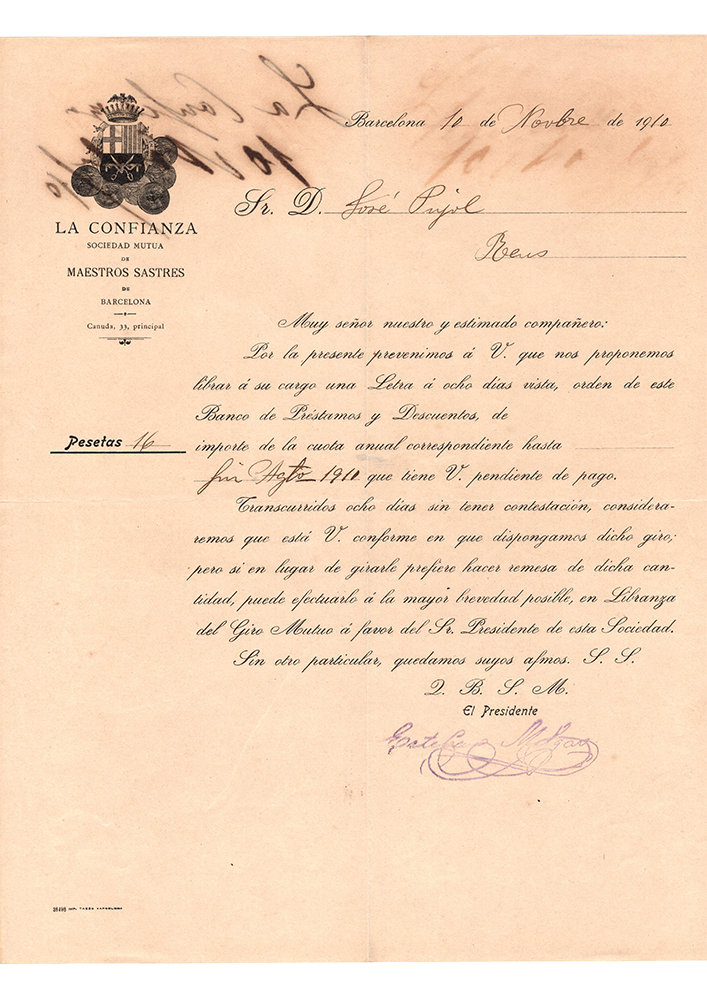 Barcelona 10 de Novbre de 1910
Sr. D. José Pujol
Reus
LA CONFIANZA
SOCIEDAD MUTUA
DE
MAESTROS SASTRES
DE
BARCELONA
Canuda, 33, principal
Muy señor nuestro y estimado compañero:
Por la presente prevenimos á V. que nos proponemos
librar á su cargo una Letra á ocho días vista, orden de este
Banco de Préstamos y Descuentos, de
Pesetas 16
importe de la cuota anual correspondiente hasta
fin Agto 1910 que tiene V. pendiente de pago.
Transcurridos ocho días sin tener contestación, considera-
remos que está V. conforme en que dispongamos dicho giro;
pero si en lugar de girarle prefiere hacer remesa de dicha can-
tidad, puede efectuarlo á la mayor brevedad posible, en Libranza
del Giro Mutuo á favor del Sr. Presidente de esta Sociedad.
Sin otro particular, quedamos suyos afmos. S. S.
Q. B. S. M.
El Presidente